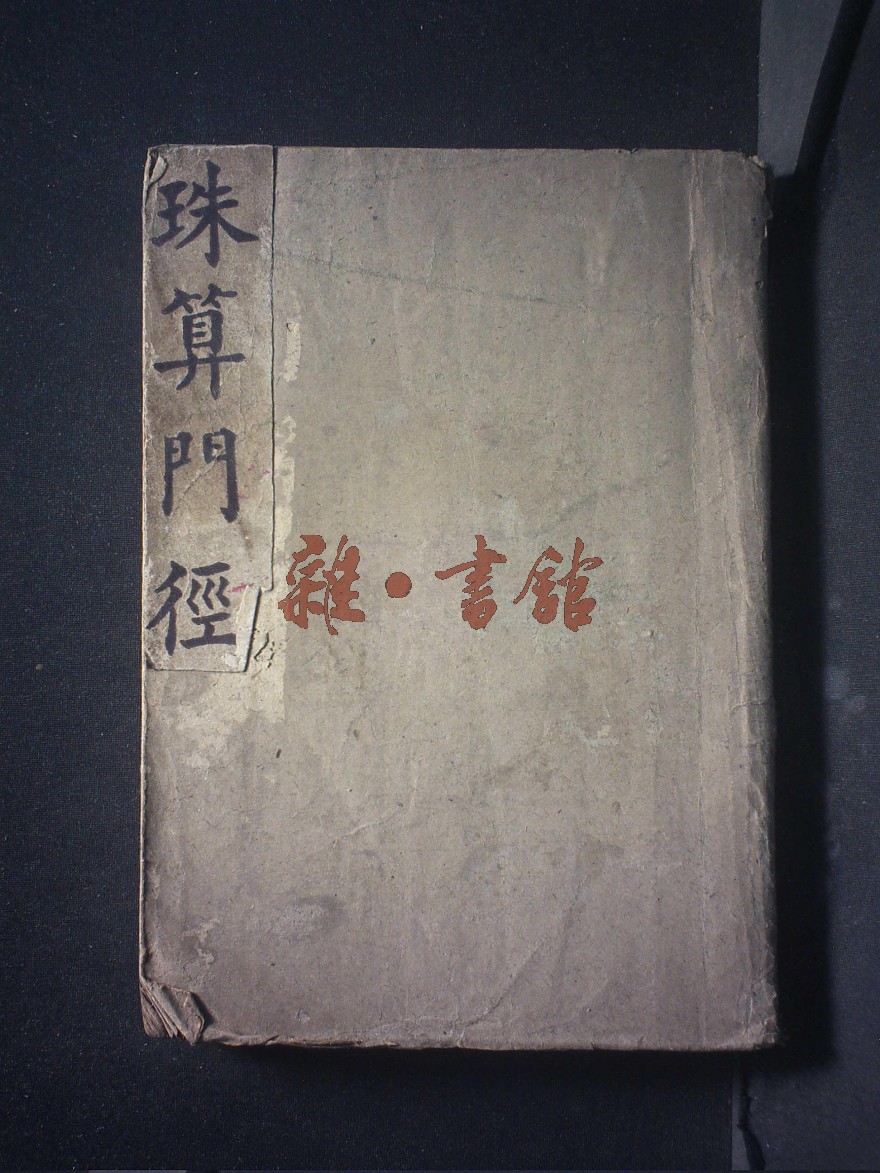 珠算門徑
雜·書館